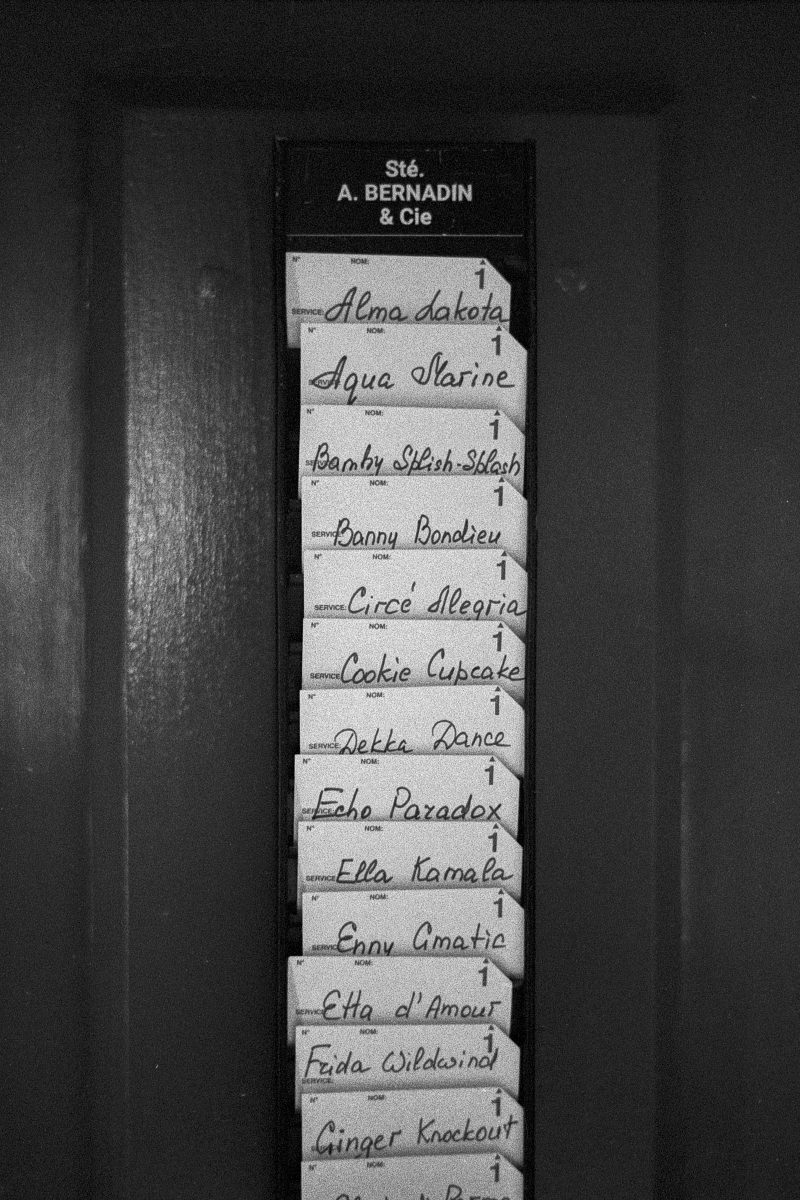 Sté.
A. BERNADIN
& Cie
N° NOM: 1
SERVICE: Alma Lakota
N° NOM: 1
Aqua Marine
N° NOM: 1
Bamby Splish-Splash
N° NOM: 1
SERVICE Banny Bondieu
N° NOM: 1
SERVICE: Circé Alegria
N° NOM: 1
SERVICE Cookie Cupcake
N° NOM: 1
SERVICE: Dekka Dance
N° NOM: 1
SERVICE: Echo Paradox
N° NOM: 1
SERVICE: Ella Kamala
N° NOM: 1
SERVICE Enny Gmatic
N° NOM: 1
SERVICE Etta d'Amour
N° NOM: 1
Frida Wildwind
SERVICE:
N° NOM: 1
Ginger Knockout
N° NOM: 1